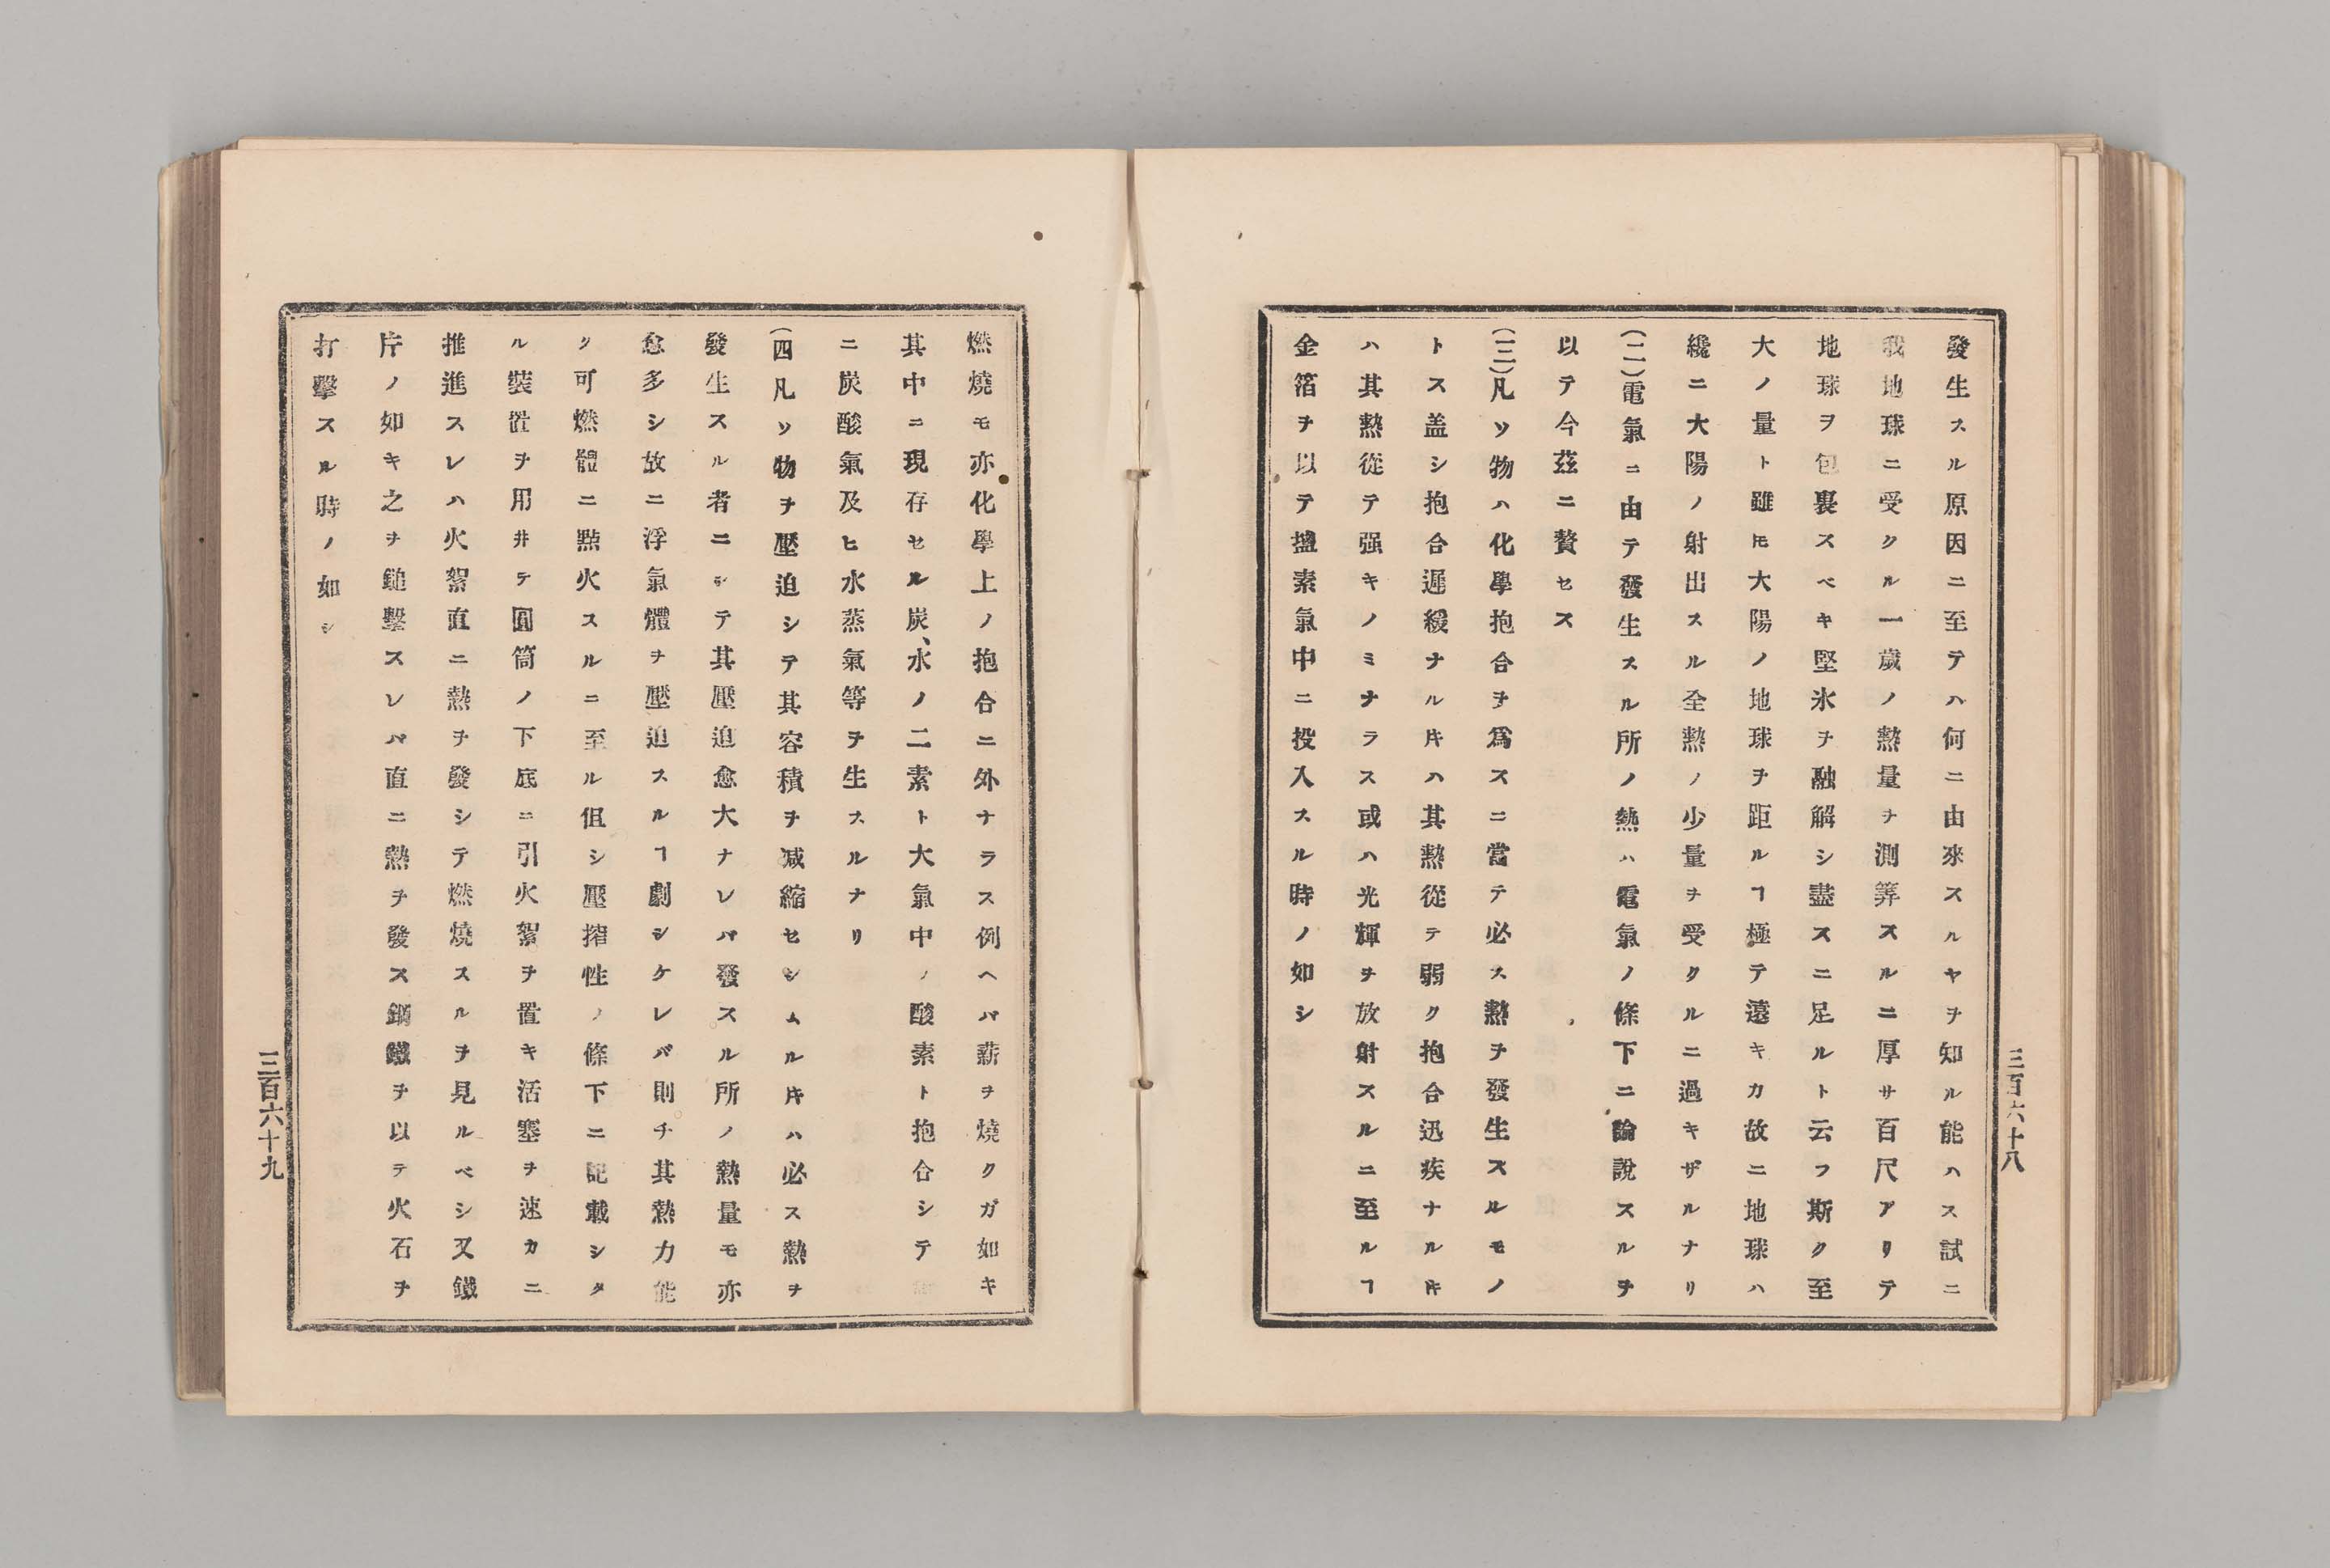 發生スル原因ニ至テハ何ニ由來スルヤヲ知ル能ハス試ニ
我地球ニ受クル一歲ノ熱量ヲ測筭スルニ厚サ百尺アリテ
地球ヲ包裹スベキ堅氷ヲ融解シ盡スニ足ルト云フ斯ク至
大ノ量ト雖𪜈大陽ノ地球ヲ距ルヿ極テ遠キカ故ニ地球ハ
纔ニ大陽ノ射出スル全熱ノ少量ヲ受クルニ過キザルナリ
(二)電氣ニ由テ發生スル所ノ熱ハ電氣ノ條下ニ論說スルヲ
以テ今茲ニ贅セス
(三)凡ソ物ハ化學抱合ヲ爲スニ當テ必ス熱ヲ發生スルモノ
トス盖シ抱合遲緩ナル𪜈ハ其熱從テ弱ク抱合迅疾ナル𪜈
ハ其熱從テ强キノミナラス或ハ光輝ヲ放射スルニ至ルヿ
金箔ヲ以テ塩素氣中ニ投入スル時ノ如シ
三百六十八
燃燒モ亦化學上ノ抱合ニ外ナラス例ヘバ薪ヲ燒クガ如キ
其中ニ現存セル炭、水ノ二素ト大氣中ノ酸素ト抱合シテ
ニ炭酸氣及ヒ水蒸氣等ヲ生スルナリ
(四凡ソ物ヲ壓迫シテ其容積ヲ减縮セシムル𪜈ハ必ス熱ヲ
發生スル者ニシテ其壓迫愈大ナレバ發スル所ノ熱量モ亦
愈多シ故ニ浮氣體ヲ壓迫スルヿ劇シケレバ則チ其熱力能
ク可燃體ニ點火スルニ至ル但シ壓搾性ノ條下ニ記載シタ
ル裝置ヲ用井テ圓筒ノ下底ニ引火絮ヲ置キ活塞ヲ速カニ
推進スレハ火絮直ニ熱ヲ發シテ燃燒スルヲ見ルベシ又鐵
片ノ如キ之ヲ鎚擊スレバ直ニ熱ヲ發ス鋼鐵ヲ以テ火石ヲ
打擊スル時ノ如シ
三百六十九